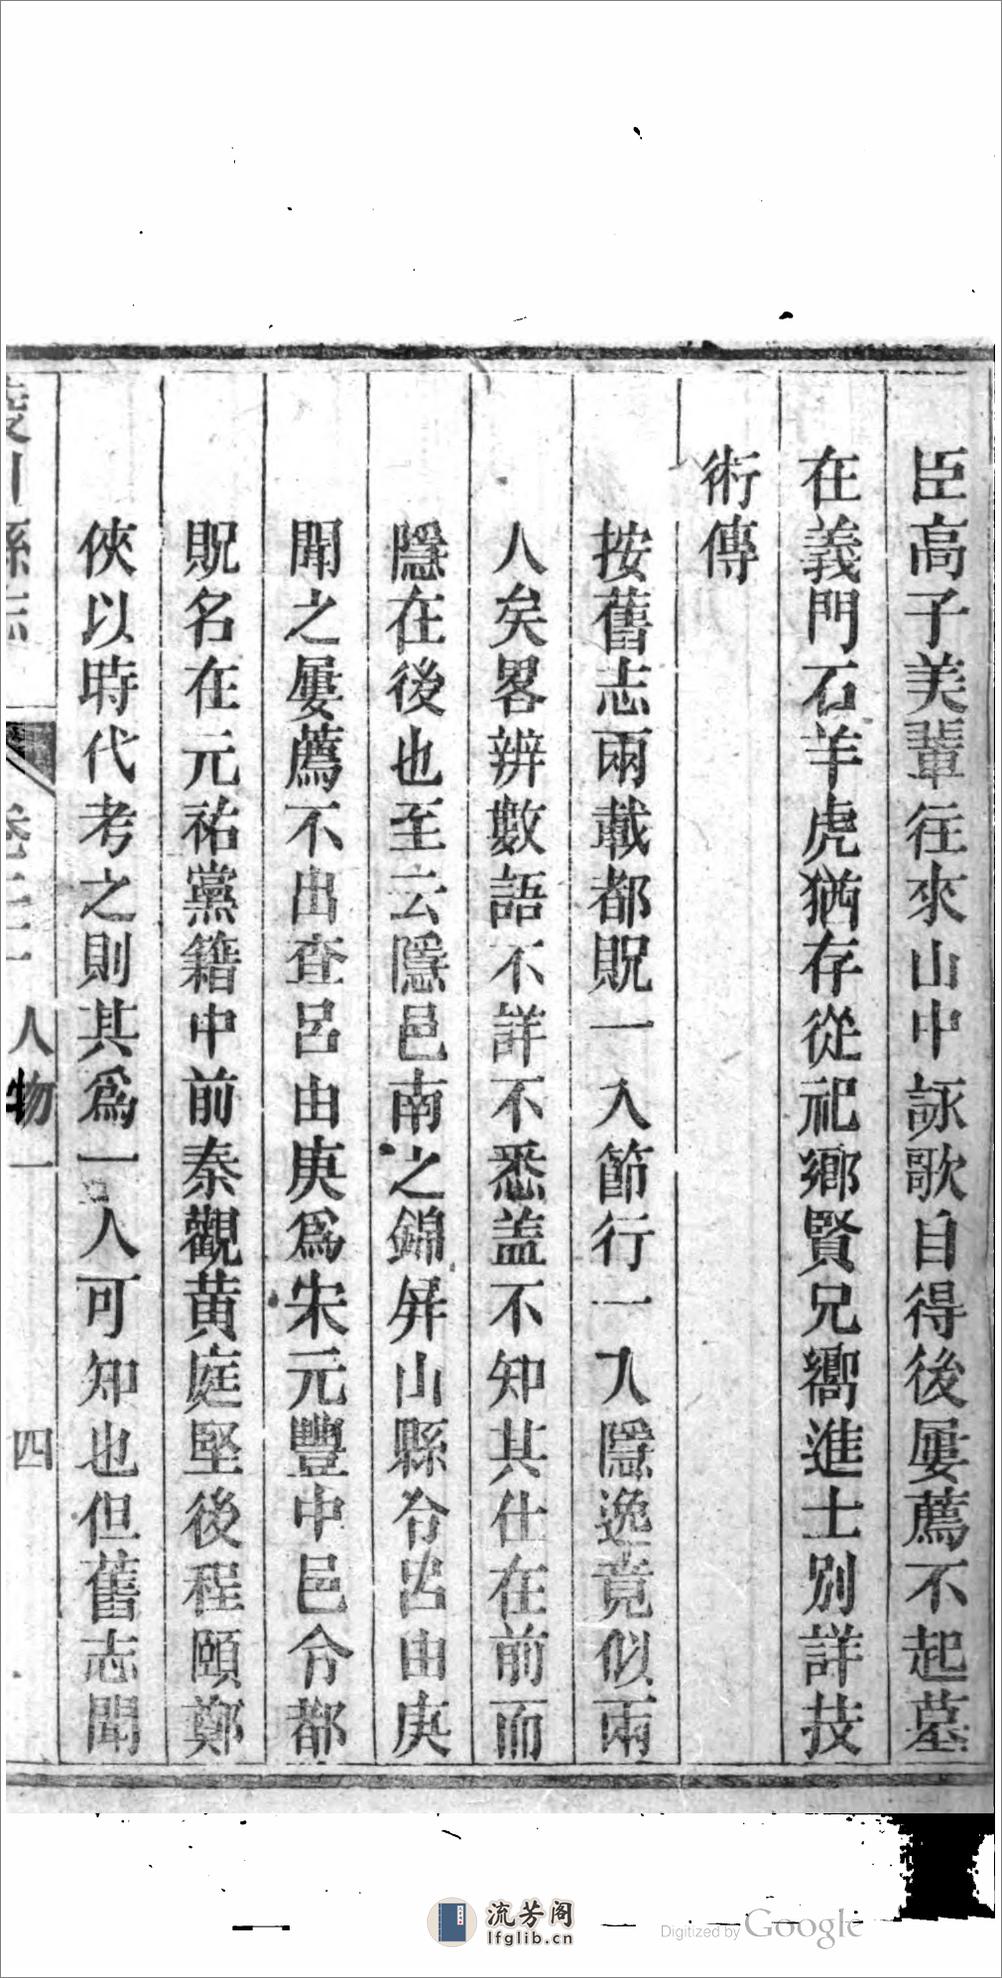 臣高子美輩往來山中詠歌自得後屢薦不起墓
在義門石羊虎猶存從祀鄉賢兄嚮進士別詳技
術傳
按舊志兩載都貺一入節行一入隱逸竟似兩
人矣畧辨數語不詳不悉盖不知其仕在前而
隱在後也至云隱邑南之錦屛山縣令呂由庚
聞之屢薦不出查呂由庚爲宋元豐中邑令都
貺名在元祐黨籍中前秦觀黄庭堅後程頤鄭
俠以時代考之則其爲一人可知也但舊志聞
縣志 卷 人物一 四
流芳阁
lfglib.cn
Digitized by Google